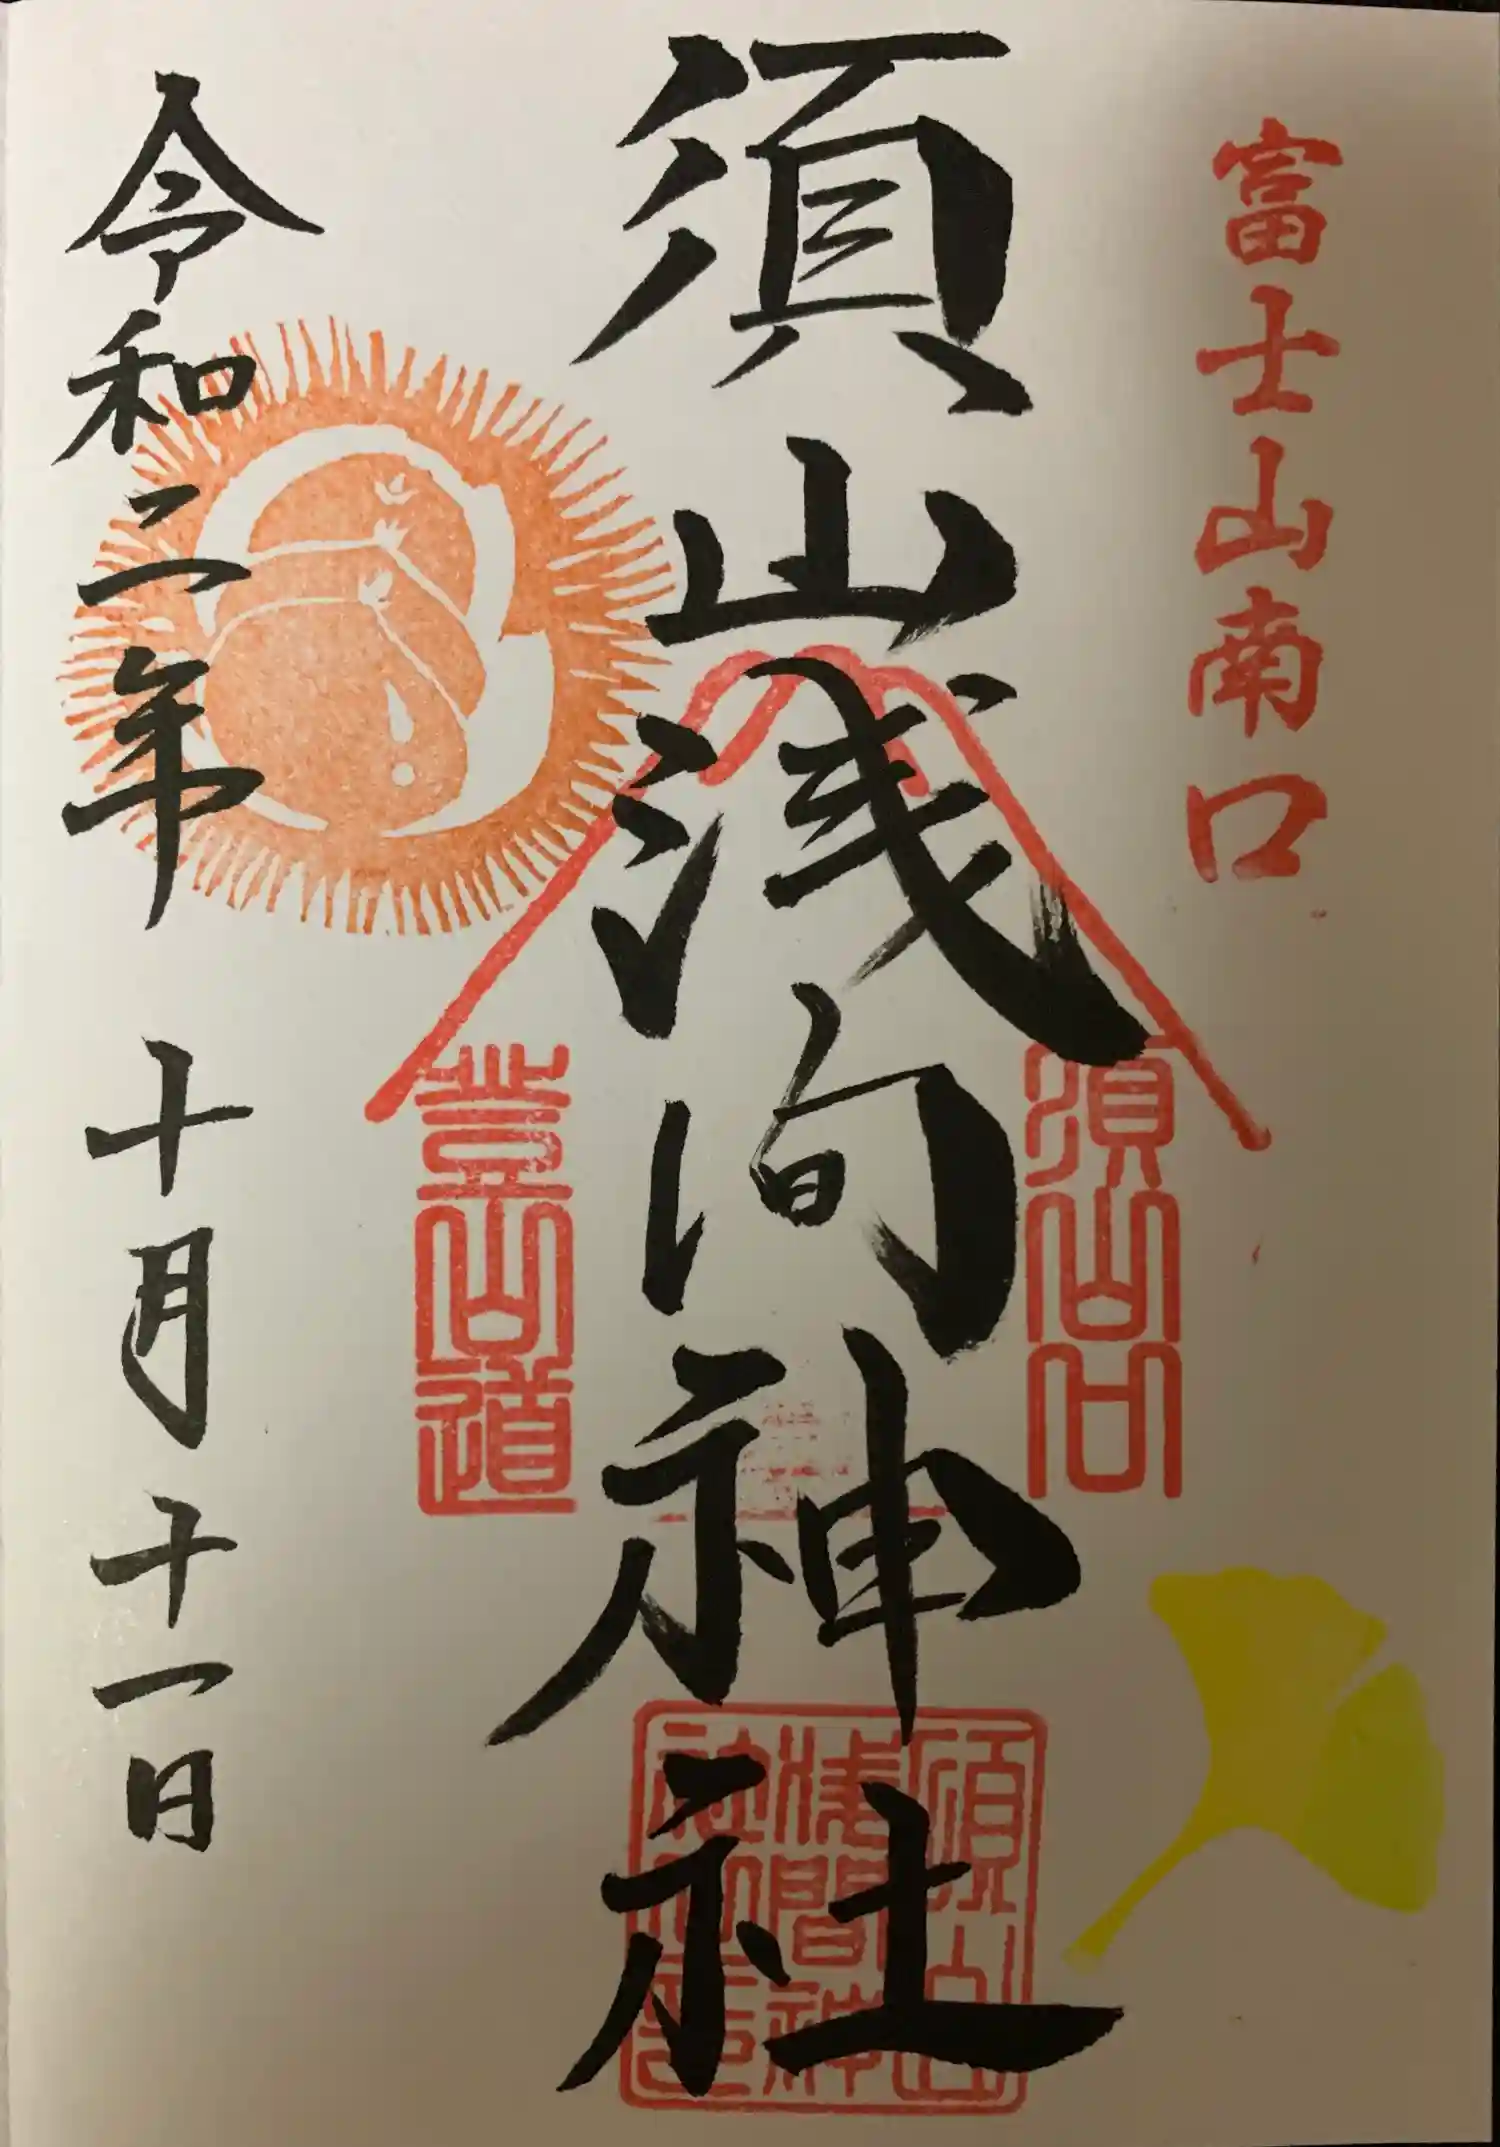 富士山南口
須山浅间神社
須山口
登山道
須山浅間神社之印
令和二年 十月十一日